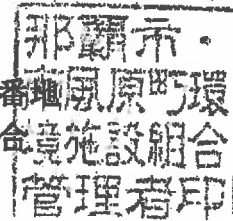 那覇市・
南風原町環
境施設組合
管理者印
番地
合